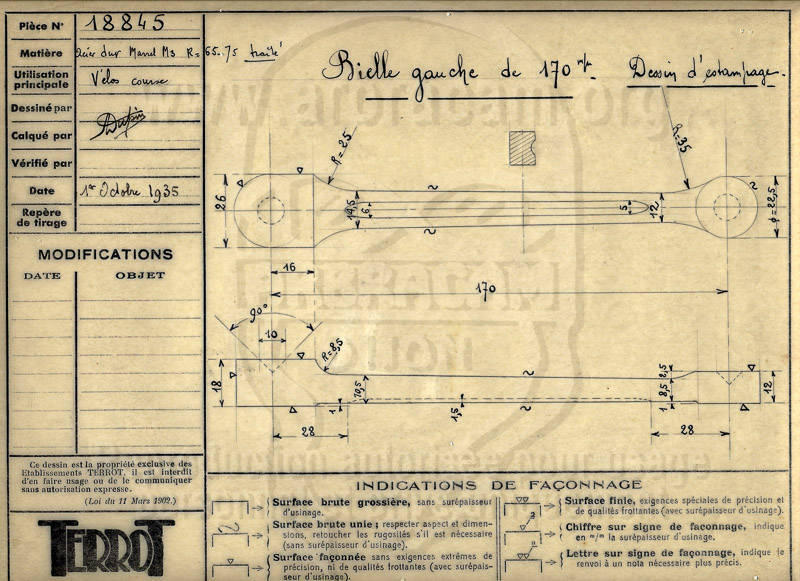 Pièce N° 18845
Matière Acier dur Marrel M3 R = 65.75 traité
Utilisation
principale Vélos course
Dessiné par
Calqué par
Vérifié par
Date 1er Octobre 1935
Repère
de tirage
MODIFICATIONS
DATE OBJET
Ce dessin est la propriété exclusive des
Etablissements TERROT, il est interdit
d'en faire usage ou de le communiquer
sans autorisation expresse.
(Loi du 11 Mars 1902.)
TERROT
Bielle gauche de 170 m/m. Dessin d'estampage.
R=25
R=35
26
14,5
6
5
12
φ=22,5
16
170
90°
10
R=8,5
18
10,5
1
1,5
2,5
8,5
1
12
28
28
INDICATIONS DE FAÇONNAGE
Surface brute grossière, sans surépaisseur
d'usinage.
Surface brute unie ; respecter aspect et dimen-
sions, retoucher les rugosités s'il est nécessaire
(sans surépaisseur d'usinage).
Surface façonnée sans exigences extrêmes de
précision, ni de qualités frottantes (avec surépais-
seur d'usinage).
Surface finie, exigences spéciales de précision et
de qualités frottantes (avec surépaisseur d'usinage).
Chiffre sur signe de façonnage, indique
en m/m la surépaisseur d'usinage.
Lettre sur signe de façonnage, indique le
renvoi à un nota nécessaire plus précis.